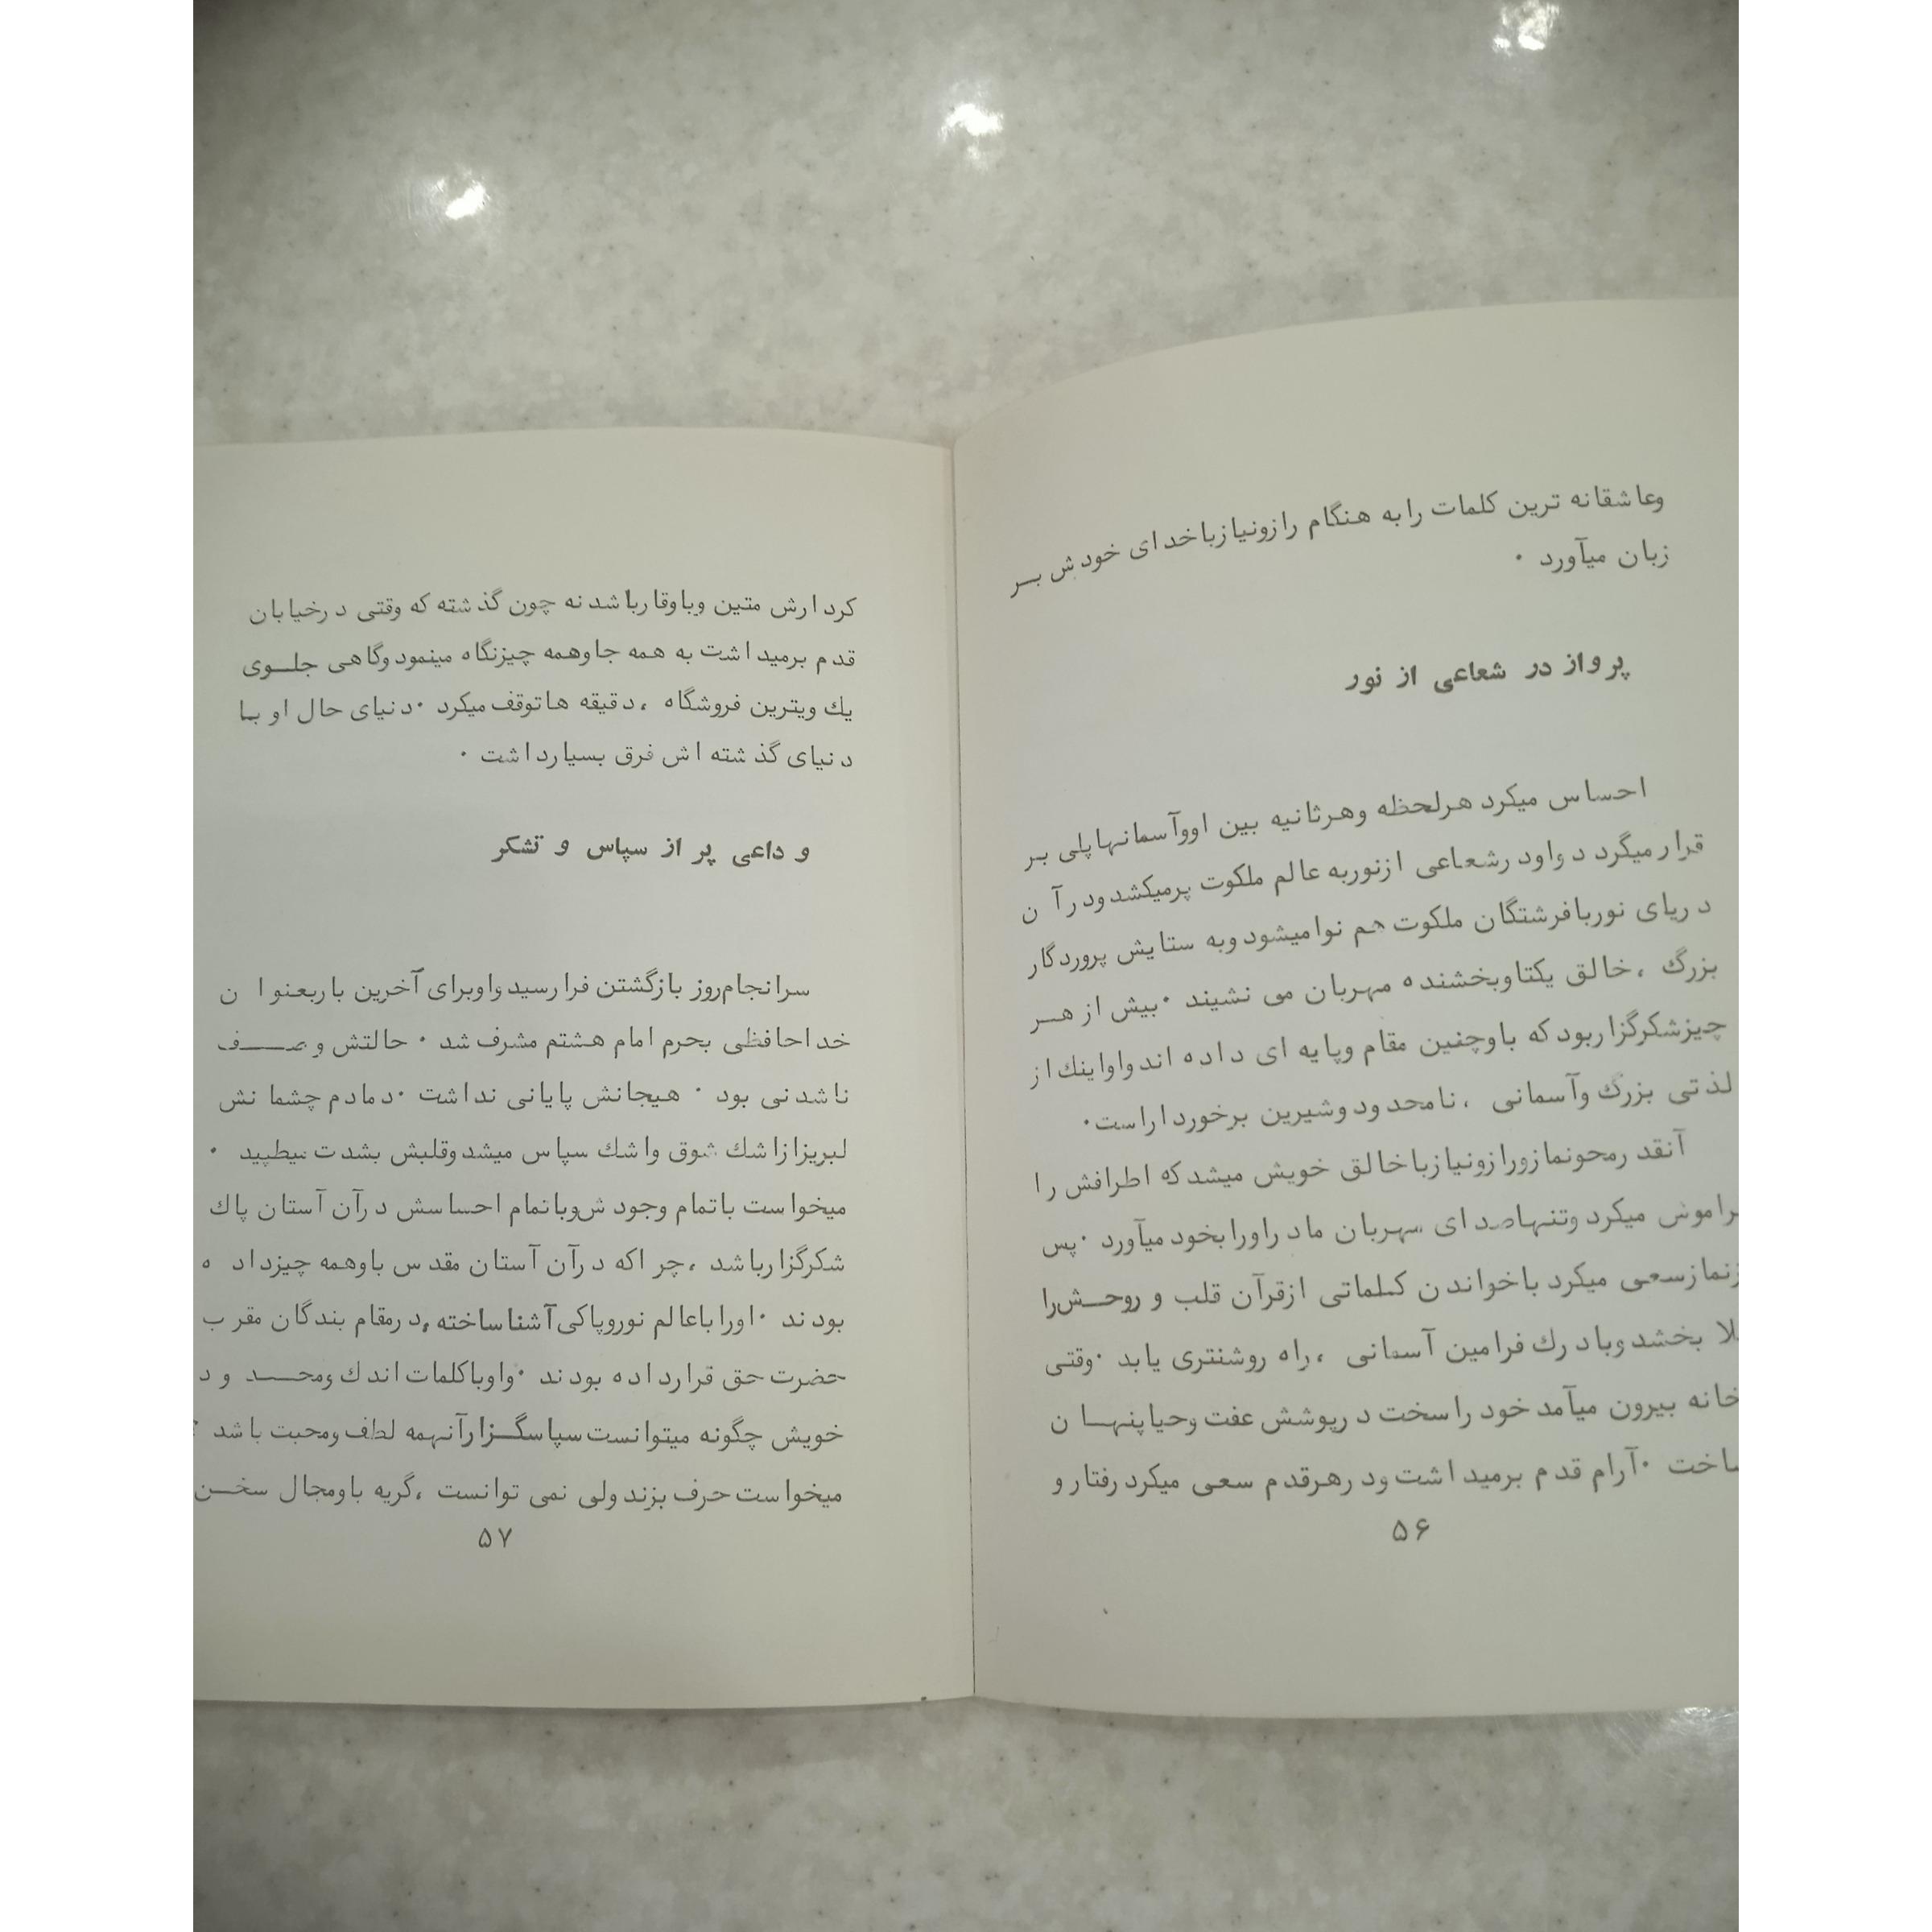 وعاشقانه ترین کلمات رابه هنگام رازونیازباخدای خودش بر
زبان میآورد .
پرواز در شعاعی از نور
احساس میکرد هرلحظه وهرثانیه بین اووآسمانهاپلی بر
قرارمیگرد د واود رشعاعی ازنوربه عالم ملکوت پرمیکشدودرآن
دریای نوربافرشتگان ملکوت هم نوامیشود وبه ستایش پروردگار
بزرگ ، خالق یکتاوبخشنده مهربان می نشیند . بیش از هر
چیزشکرگزاربودکه باوچنین مقام وپایه ای داده اندواواینك از
لذتی بزرگ وآسمانی ، نامحدود وشیرین برخورداراست .
آنقدرمحونمازورازونیازباخالق خویش میشدکه اطرافش را
راموش میکرد وتنهاصدای مهربان مادراورابخود میآورد . پس
زنمازسعی میکرد باخواندن کلماتی ازقرآن قلب و روحش را
لا بخشد وبادرك فرامین آسمانی ، راه روشنتری یابد . وقتی
خانه بیرون میآمد خود راسخت درپوشش عفت وحیاپنهان
ساخت . آرام قدم برمیداشت ودرهرقدم سعی میکرد رفتار و
۵۶
کردارش متین وباوقارباشد نه چون گذشته که وقتی درخیابان
قدم برمیداشت به همه جاوهمه چیزنگاه مینمود وگاهی جلوی
یك ویترین فروشگاه ، دقیقه هاتوقف میکرد . دنیای حال او با
دنیای گذشته اش فرق بسیارداشت .
وداعی پر از سپاس و تشکر
سرانجام روز بازگشتن فرارسید واوبرای آخرین باربعنوان
خداحافظی بحرم امام هشتم مشرف شد . حالتش وصف
ناشدنی بود . هیجانش پایانی نداشت . دمادم چشمانش
لبریزازاشك شوق واشك سپاس میشد وقلبش بشدت میطپید .
میخواست باتمام وجودش وباتمام احساسش درآن آستان پاك
شکرگزارباشد ، چراکه درآن آستان مقدس باوهمه چیزداده
بودند . اوراباعالم نوروپاکی آشناساخته ، درمقام بندگان مقرب
حضرت حق قرارداده بودند . واوباکلمات اندك ومحدود
خویش چگونه میتوانست سپاسگزارآنهمه لطف ومحبت باشد ؟
میخواست حرف بزند ولی نمی توانست ، گریه باومجال سخن
۵۷